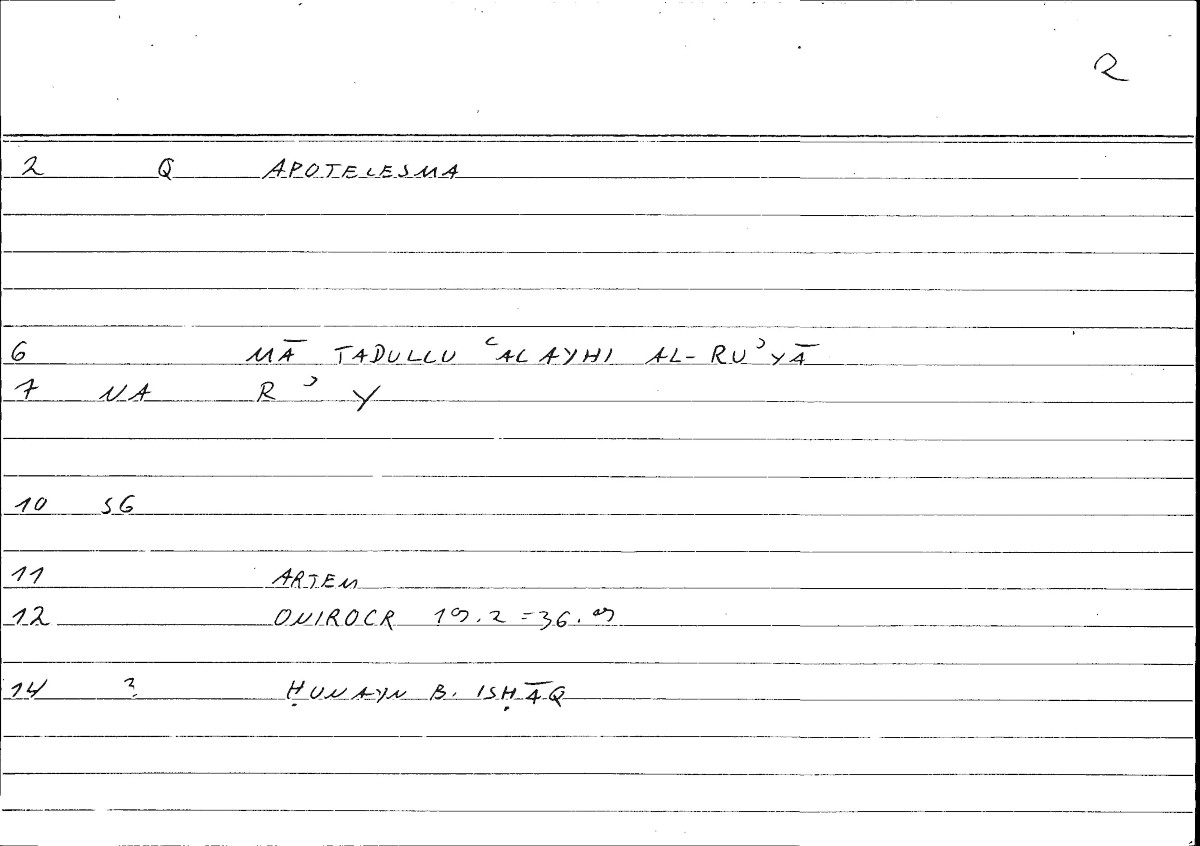 2
2 Q APOTELESMA
6 MĀ TADULLU ʿALAYHI AL-RUʾYĀ
7 NA R ʾ Y
10 SG
11 ARTEM
12 ONIROCR 19.2 = 36.9
14 ? ḤUNAYN B. ISḤĀQ